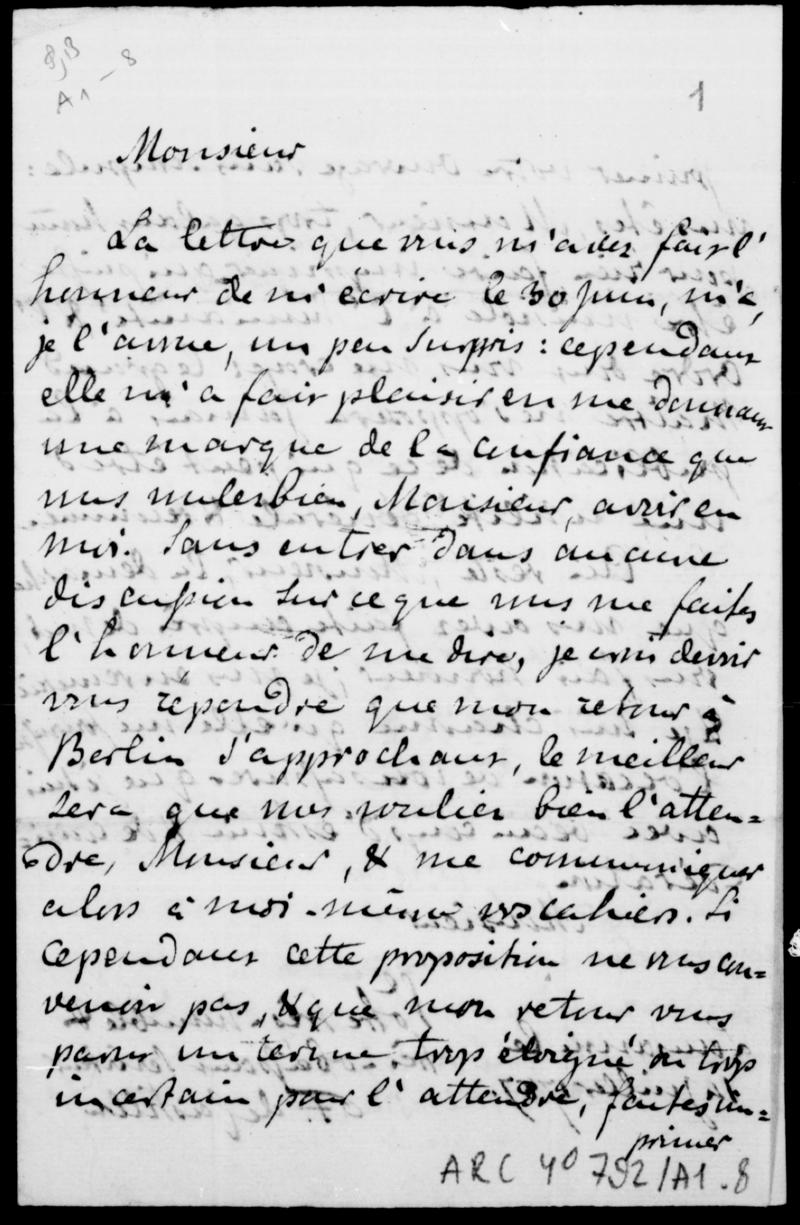 8,B
A1-8
1
Monsieur
La lettre que vous m'avez fait l'
honneur de m'écrire le 30 Juin, m'a,
je l'avoue, un peu surpris : cependant
elle m'a fait plaisir en me donnant
une marque de la confiance que
vous voulez bien, Monsieur, avoir en
moi. Sans entrer dans aucune
discussion sur ce que vous me faites
l'honneur de me dire, je crois devoir
vous répondre que mon retour à
Berlin s'approchant, le meilleur
sera que vous vouliez bien l'atten=
dre, Monsieur, & me communiquer
alors à moi-même vos cahiers. Si
cependant cette proposition ne vous con=
venoit pas, & que mon retour vous
parut un terme trop éloigné ou trop
incertain pour l'attendre, faites im=
primer
ARC 4° 792/A1.8